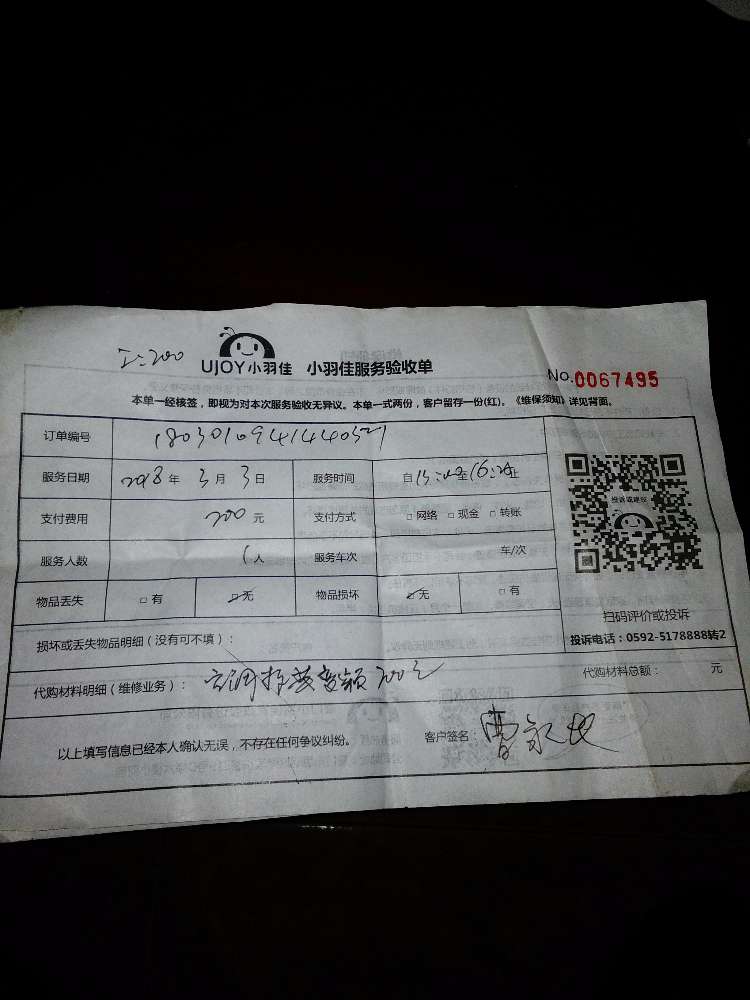 工:200
UJOY小羽佳 小羽佳服务验收单
No.0067495
本单一经核签，即视为对本次服务验收无异议。本单一式两份，客户留存一份(红)。《维保须知》详见背面。
订单编号 180301094144032
服务日期 2018年3月3日 服务时间 自 至 止
支付费用 200元 支付方式 □网络 □现金 □转账
服务人数 1人 服务车次 车/次
物品丢失 □有 ☑无 物品损坏 ☑无 □有
投诉或建议
扫码评价或投诉
投诉电话：0592-5178888转2
损坏或丢失物品明细（没有可不填）：
代购材料明细（维修业务）： 空调 200元
代购材料总额： 元
以上填写信息已经本人确认无误，不存在任何争议纠纷。
客户签名：曹永